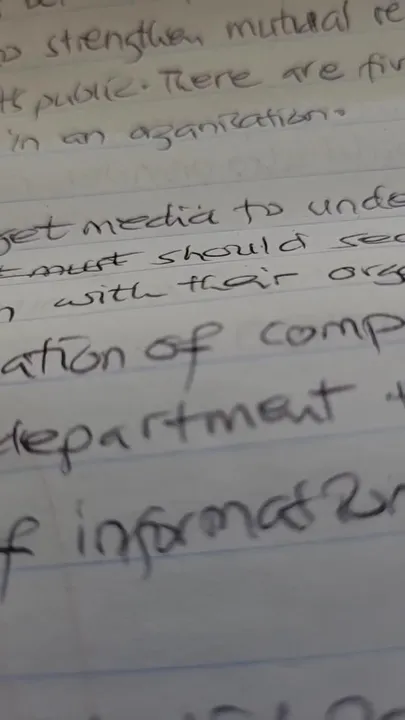 to strengthen mutual re
its public. There are fiv
in an oganization.
get media to unde
t must should sec
n with their orga
ation of comp
department
f information